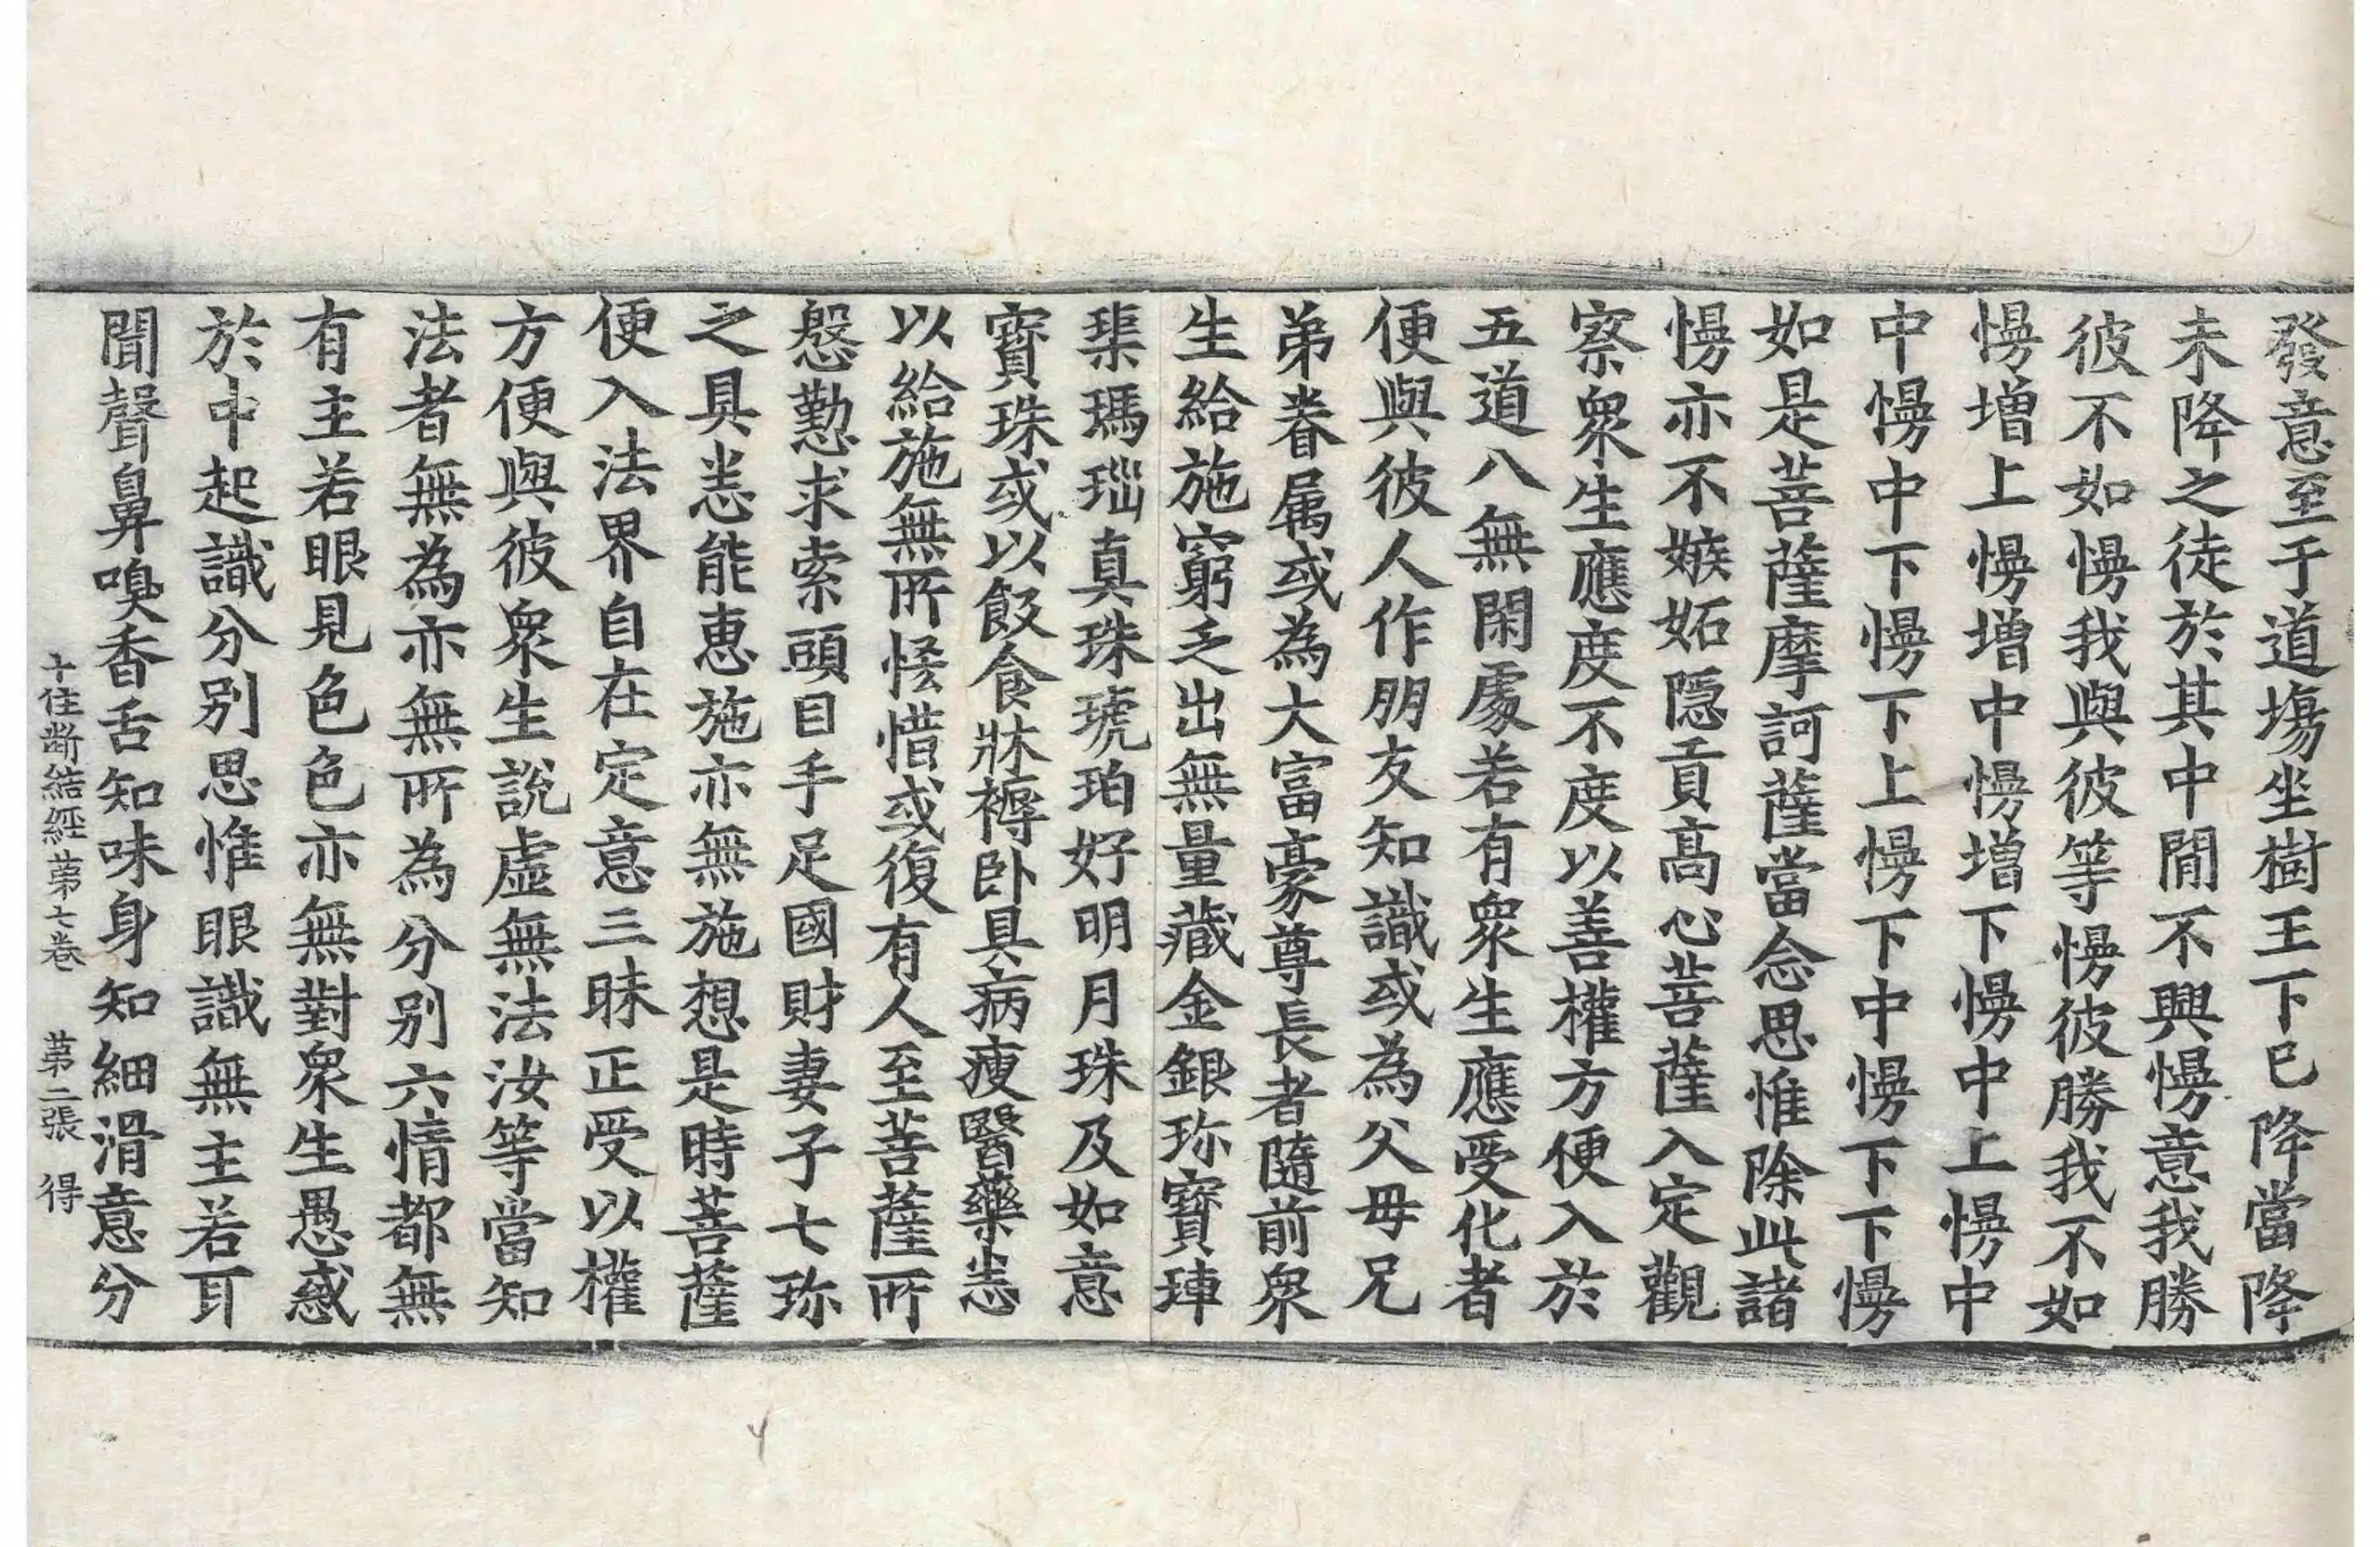 發意至于道塲坐樹王下已降當降
未降之徒於其中閒不興慢意我勝
彼不如慢我與彼等慢彼勝我不如
慢增上慢增中慢增下慢中上慢中
中慢中下慢下上慢下中慢下下慢
如是菩薩摩訶薩當念思惟除此諸
慢亦不嫉妬隱貢高心菩薩入定觀
察衆生應度不度以善權方便入於
五道八無閑處若有衆生應受化者
便與彼人作朋友知識或為父母兄
弟眷属或為大富豪尊長者隨前衆
生給施窮乏出無量藏金銀珎寶琿
璖瑪瑙真珠琥珀好明月珠及如意
寶珠或以飯食牀褥卧具病瘦醫藥恙
以給施無所恡惜或復有人至菩薩所
慇懃求索頭目手足國財妻子七珎
之具恙能惠施亦無施想是時菩薩
便入法界自在定意三昧正受以權
方便與彼衆生說虛無法汝等當知
法者無為亦無所為分别六情都無
有主若眼見色色亦無對衆生愚惑
於中起識分别思惟眼識無主若耳
聞聲鼻嗅香舌知味身知細滑意分
十住斷結經苐七卷 苐二張 得